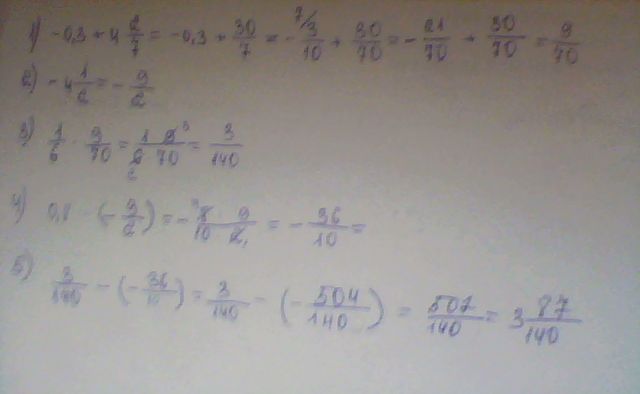 1) -0,3 + 4 2/7 = -0,3 + 30/7 = - 3/10 + 30/70 = - 21/70 + 30/70 = 9/70
2) - 4 1/2 = - 9/2
3) 1/6 · 9/70 = 1 9/6 70 = 3/140
4) 0,8 · (- 9/2) = - 8 · 9/10 · 2 = - 36/10 =
5) 3/140 - (- 36/10) = 3/140 - (- 504/140) = 507/140 = 3 87/140